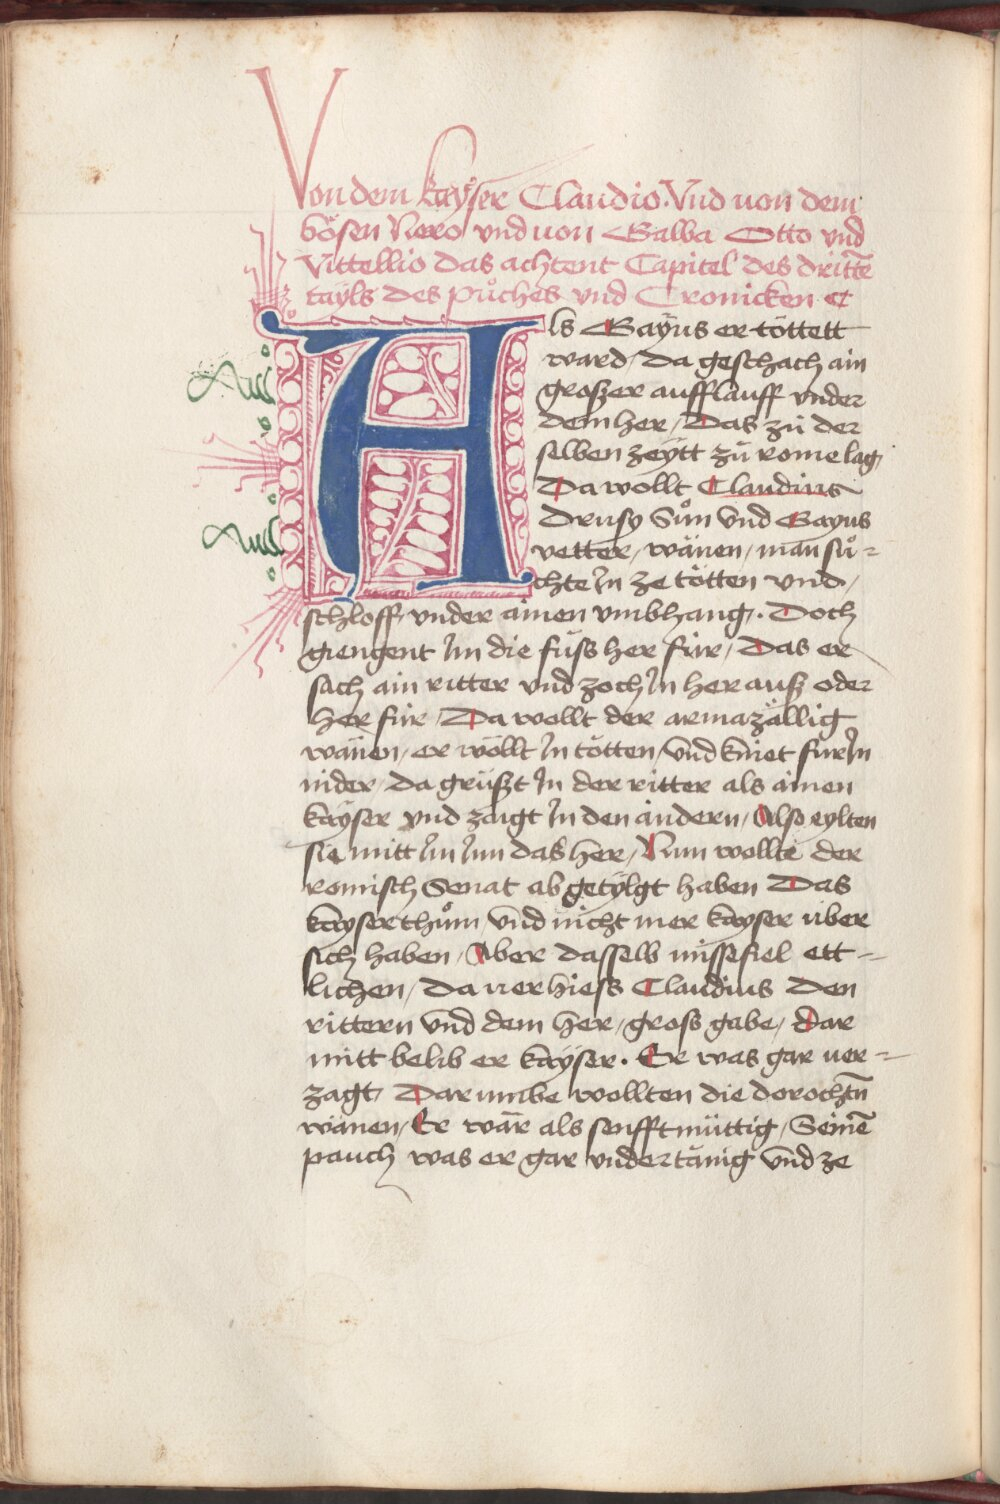 Von dem kayser Claudio. Vnd uon dem
bösen Nero vnd uon Galba Otto vnd
Vittellio das achtent Capitel des dritt̄e
tayls des půches vnd Cronicken ⁊c
Als Gayus er töttett
ward / da geschach ain
groszer auffläuff vnder
dem her / Das zů der
selben zeytt zů rome lag /
Da wollt Claudius
Drusy Sůn vnd Gayus
vetter / wänen / man sů =
chte In ze tötten vnd /
schloff vnder ainen vmbhang. Doch
giengent Im die füss her für / Das er
sach ain ritter vnd zoch In her ausz oder
her für / Da wollt der armazällig
wänen / er wöllt In tötten / vnd kniet für In
nider / da grüszt In der ritter als ainen
kayser vnd zaigt In den andern / Also eylten
sie mitt Im Inn das her / Nun wollte der
romisch Senat ab getylgt haben Das
kayserthům / vnd nicht mer kayser über
sich haben / Aber dasselb missefiel ett =
lichen / Da uerhiess Claudius den
rittern vnd dem her / gross gabe / dar
mitt belib er kayser. Er was gar uer =
zagt / Dar umbe wollten die dorocht̄n
wänen / Er wär als senfftmüttig / Sein̄e
pauch was er gar vndertänig vnd ze